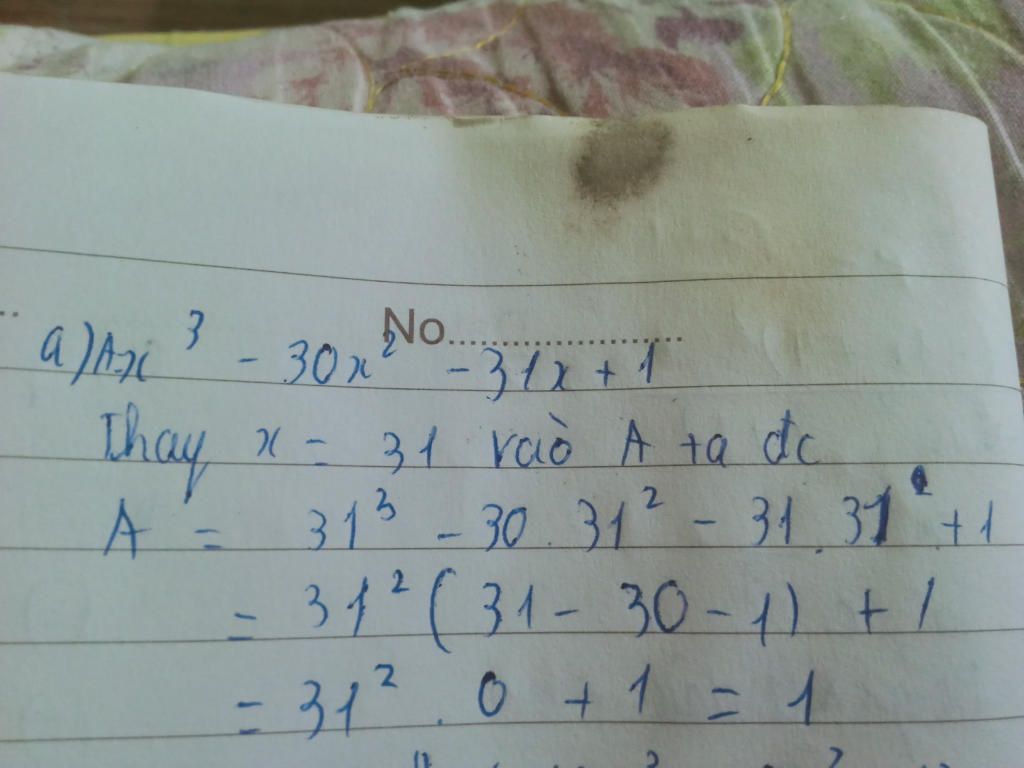 No.....................
a) A=x³ - 30x² - 31x + 1
Thay x = 31 vaò A ta đc
A = 31³ - 30 . 31² - 31 . 31 + 1
= 31² ( 31 - 30 - 1 ) + 1
= 31² . 0 + 1 = 1